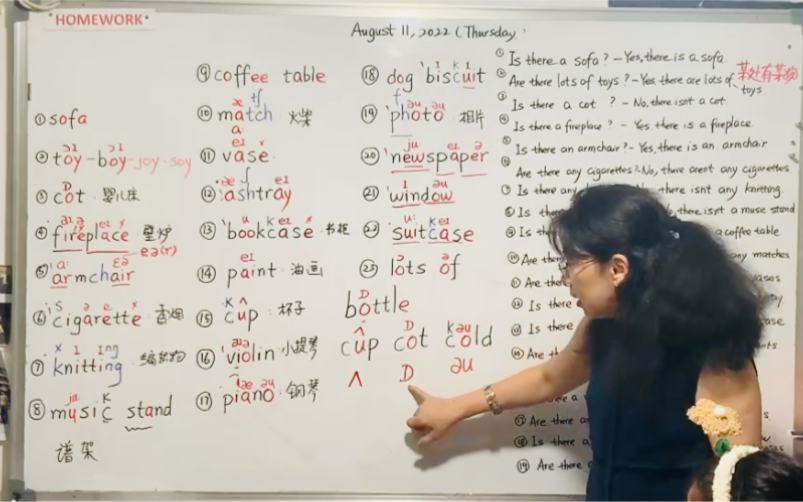 HOMEWORK
August 11, 2022 (Thursday)
① sofa
② toy - boy - joy - soy
③ cot 婴儿床
④ fireplace 壁炉
⑤ armchair
⑥ cigarette 香烟
⑦ knitting 编织物
⑧ music stand
谱架
⑨ coffee table
⑩ match 火柴
⑪ vase
⑫ ashtray
⑬ bookcase 书柜
⑭ paint 油画
⑮ cup 杯子
⑯ violin 小提琴
⑰ piano 钢琴
⑱ dog biscuit
⑲ photo 相片
⑳ newspaper
㉑ window
㉒ suitcase
㉓ lots of
bottle
cup cot cold
ʌ ɒ əu
① Is there a sofa? - Yes, there is a sofa.
② Are there lots of toys? - Yes there are lots of toys.
③ Is there a cot? - No, there isnt a cot.
④ Is there a fireplace? - Yes, there is a fireplace.
⑤ Is there an armchair? - Yes, there is an armchair
⑥ Are there any cigarettes? - No, there arent any cigarettes
⑦ Is there any there isnt any knitting
⑧ Is there isn't a music stand
⑨ Is a coffee table
⑩ Are any matches
⑪ Are there
⑫ Is there
⑬ Is there
⑭ Are
there a
⑰ Are there
⑱ Is there a
⑲ Are there